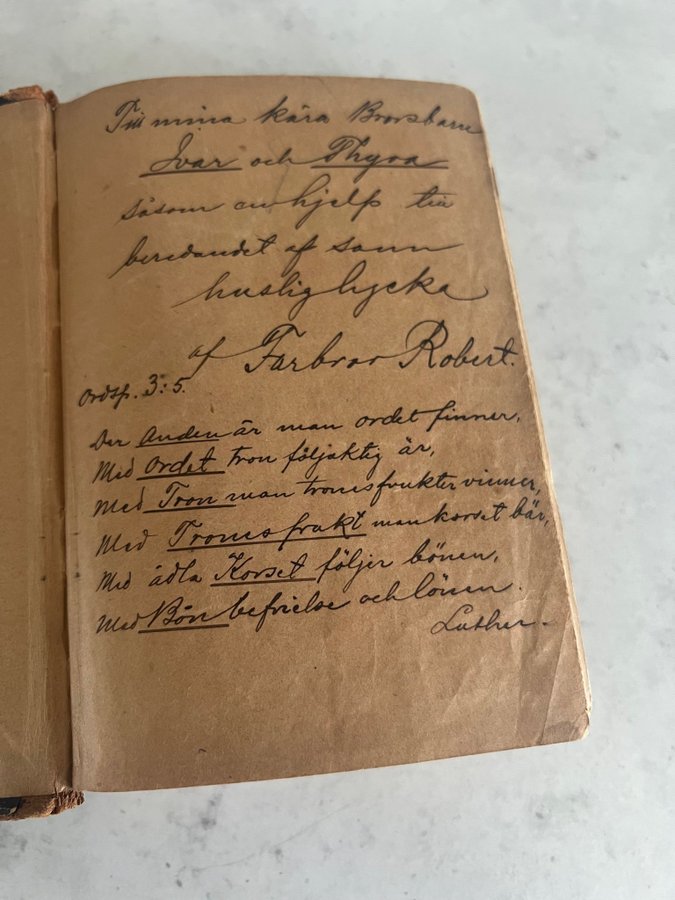 Till mina kära Brorsbarn
Ivar och Thyra
såsom en hjelp till
beredandet af sann
huslig lycka
af Farbror Robert.
Ordsp. 3:5.
Der Anden är man ordet finner,
Med Ordet tron följaktig är,
Med Tron man tronsfrukter vinner,
Med Tronsfrukt man korset bär,
Med ädla Korset följer bönen,
Med Bön befrielse och lönen.
Luther.